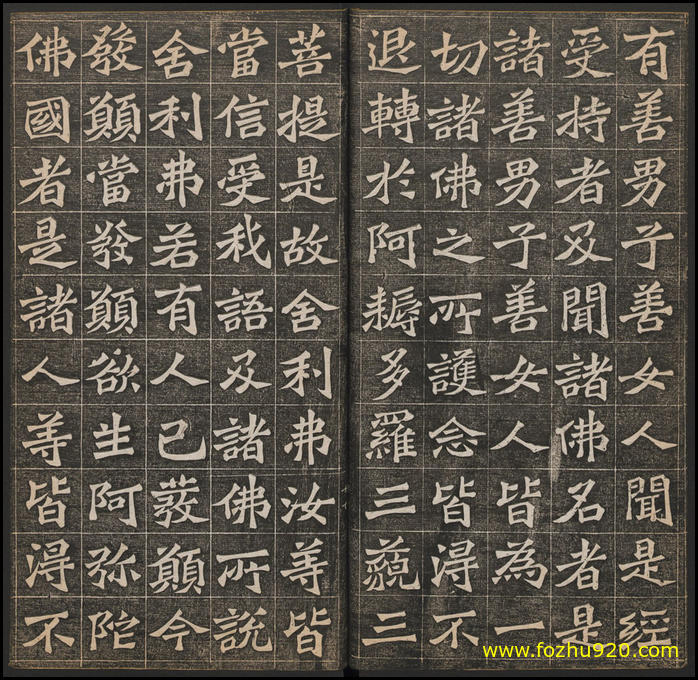 有善男子善女人聞是經
受持者及聞諸佛名者是
諸善男子善女人皆為一
切諸佛之所護念皆得不
退轉於阿耨多羅三藐三
菩提是故舍利弗汝等皆
當信受我語及諸佛所說
舍利弗若有人已發願今
發願當發願欲生阿弥陀
佛國者是諸人等皆得不
www.fozhu920.com